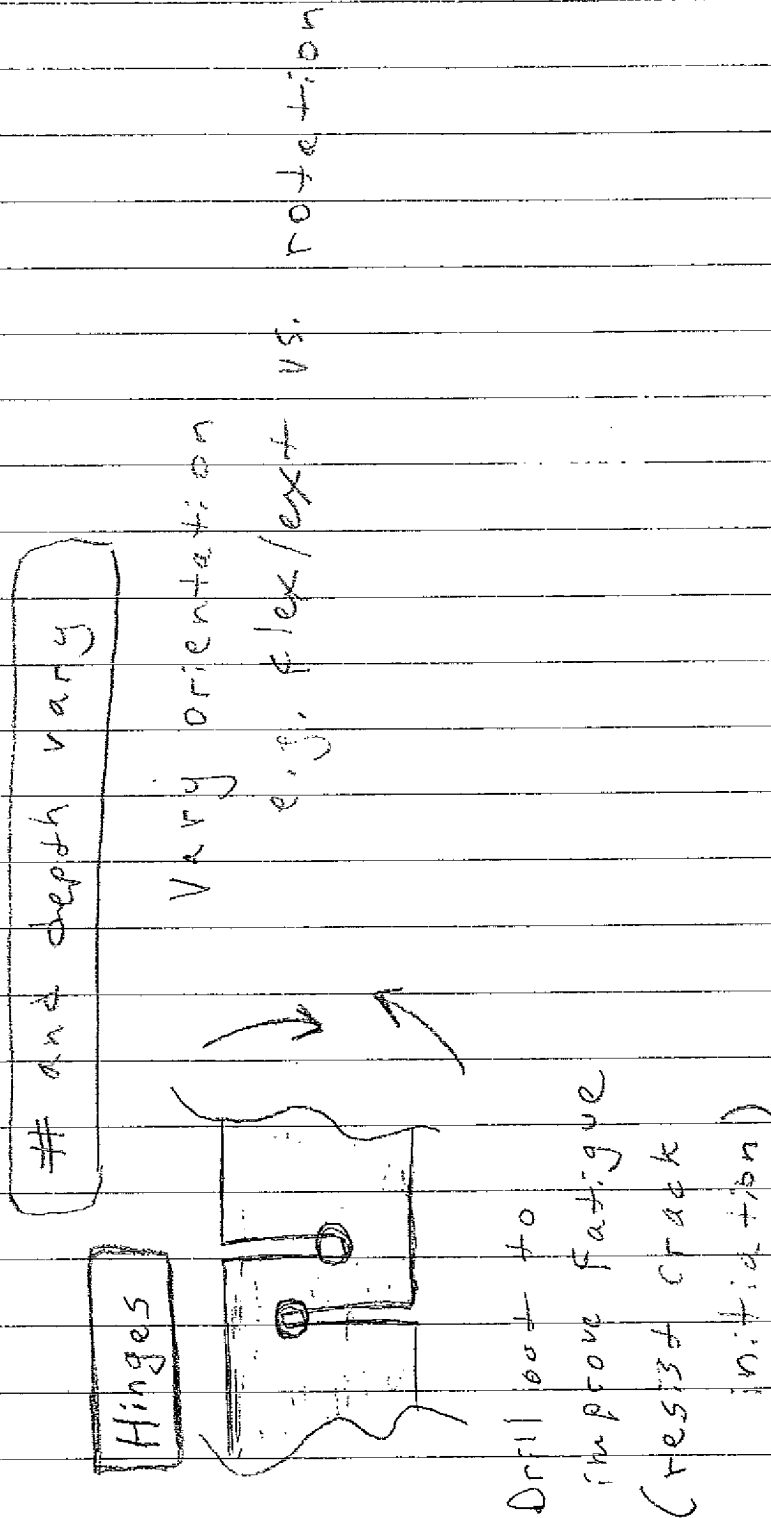 Hinges
# and depth vary
Vary orientation
e.g. flex/ext vs. rotation
Drill out to
improve fatigue
(resist crack
initiation)